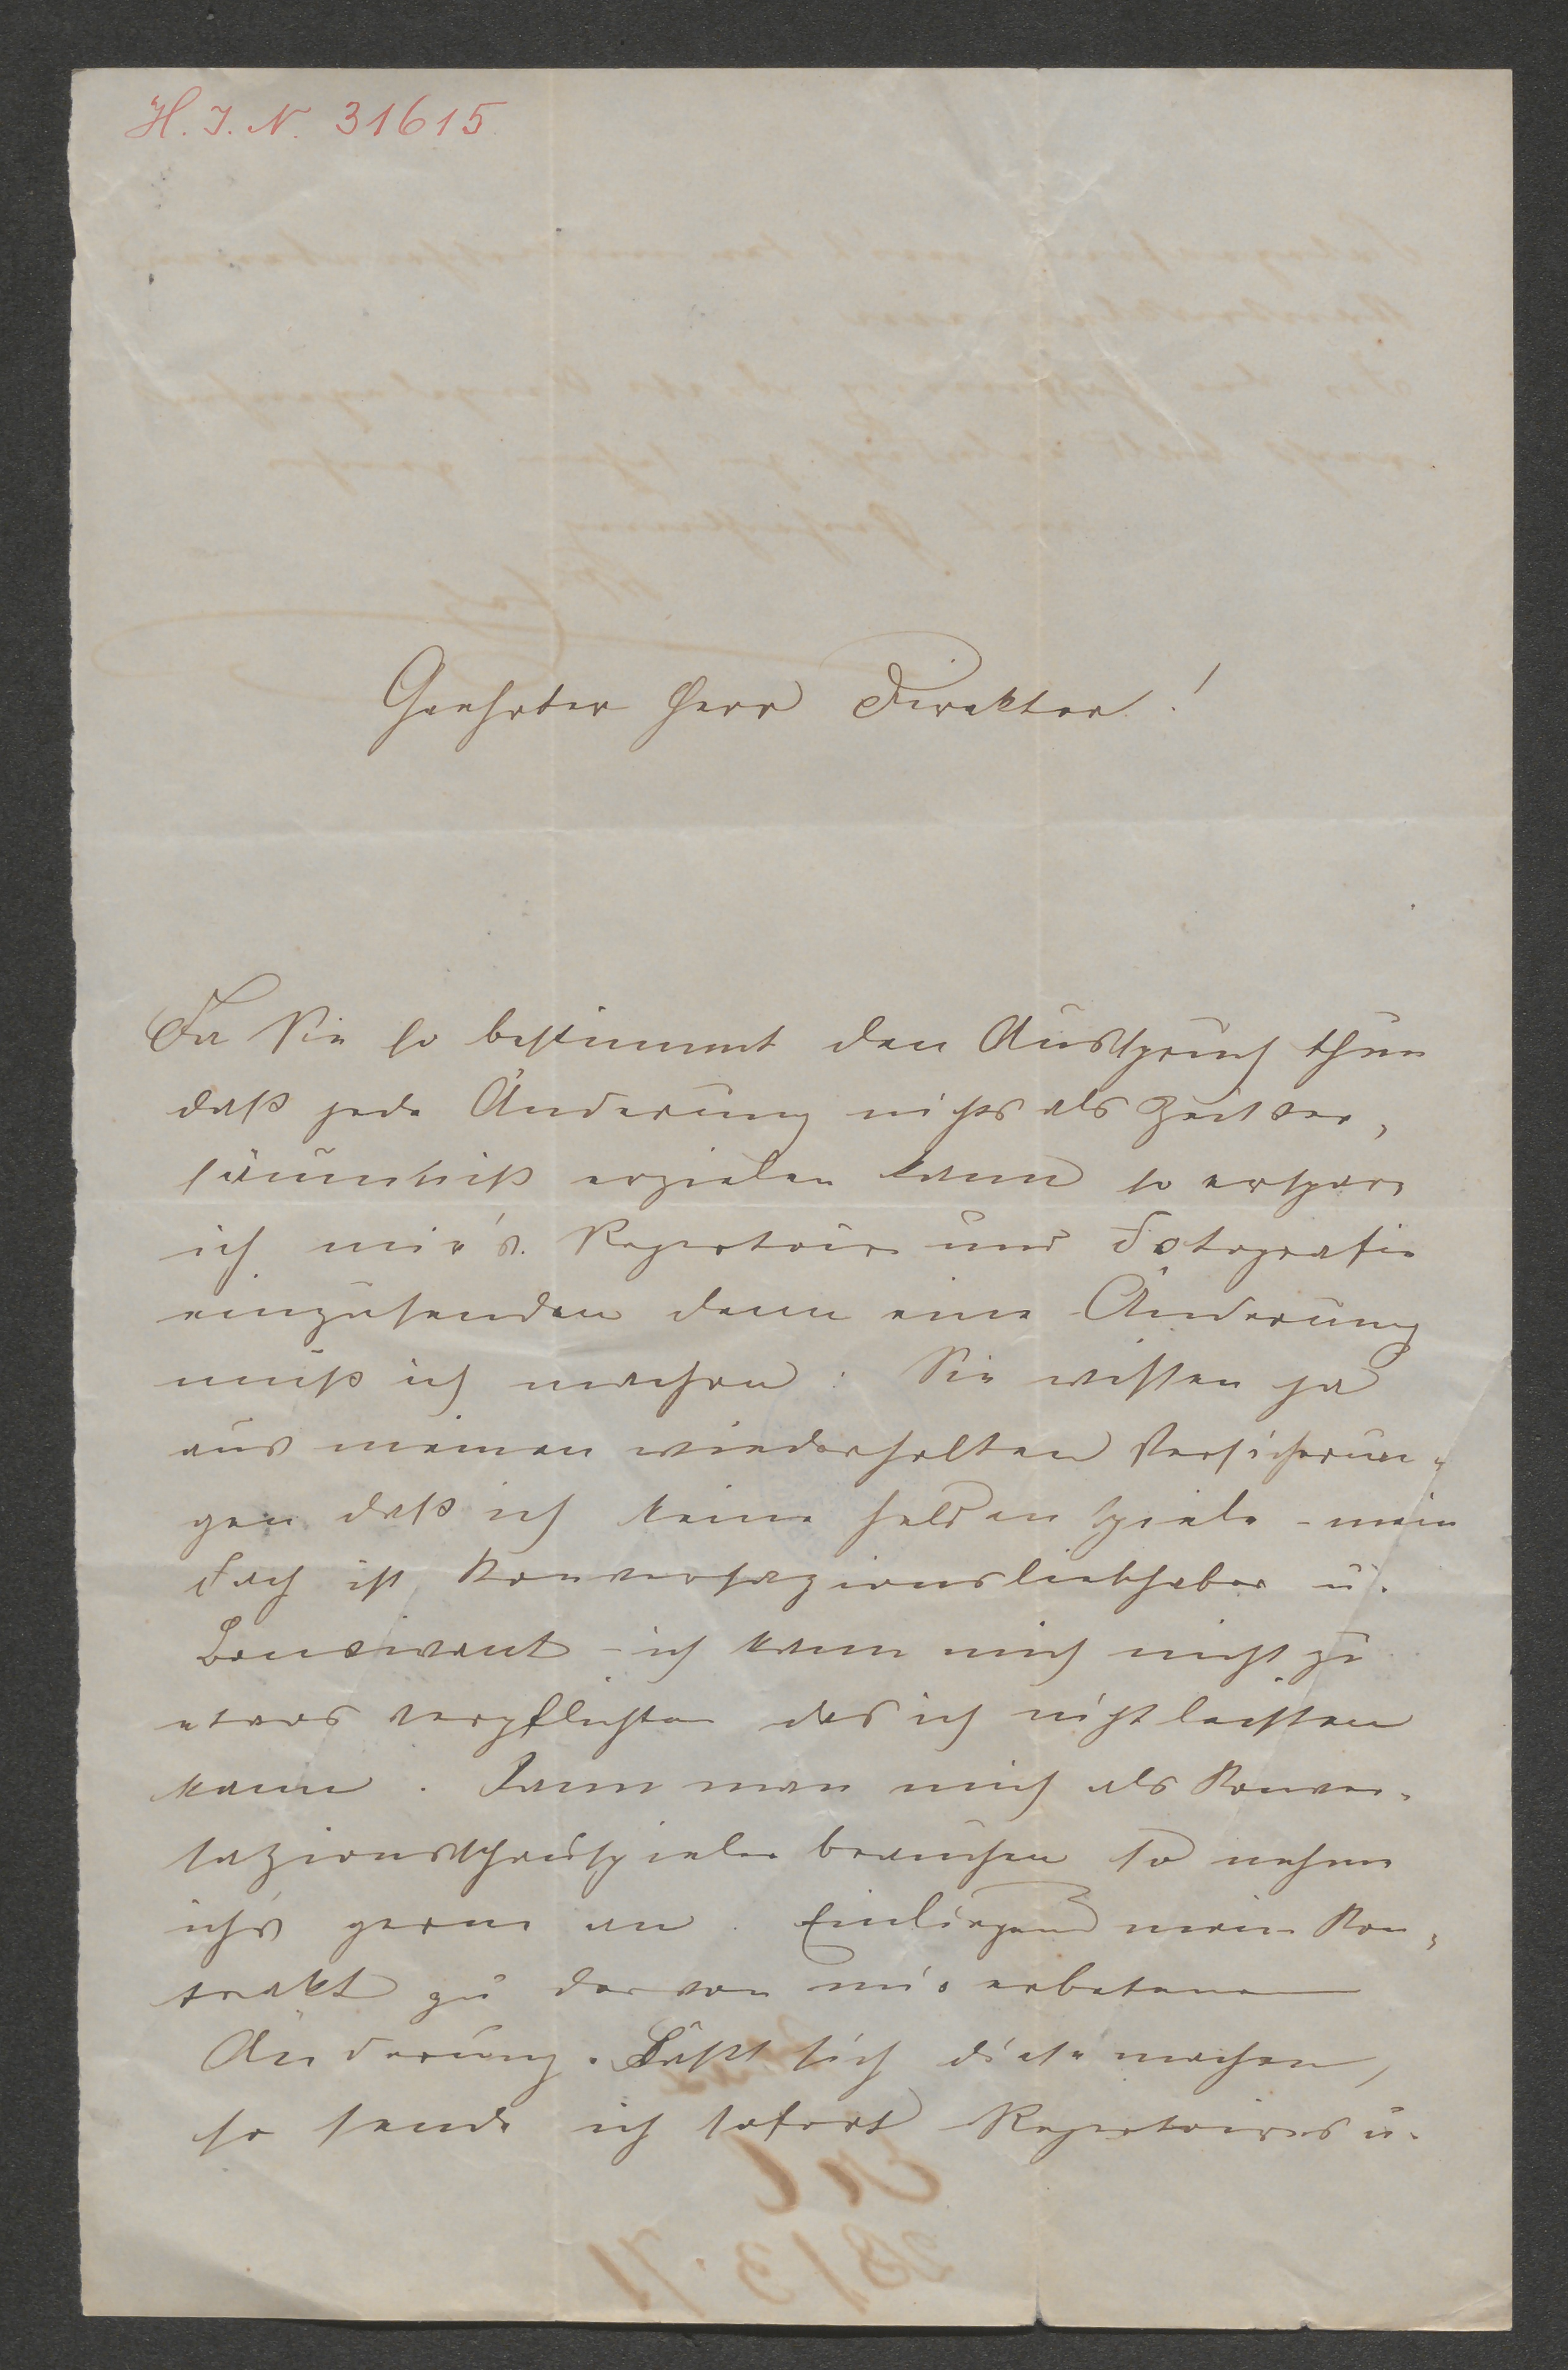 H. I. N. 31615.
Geehrter Herr Direktor!
Da Sie so bestimmt den Ausspruch thun
daß jede Änderung nichts als Zeitver,
säumniß erzielen kann so erspare
ich mir's Repertoir und Fotografie
einzusenden denn eine Änderung
muß ich machen: Sie wissen ja
aus meinen wiederholten Versicherun,
gen daß ich keine Helden spiele - mein
Fach ist Konversazionsliebhaber u.
Bonvivant - ich kann mich nicht zu
etwas verpflichten das ich nicht leisten
kann. Kann man mich als Konver-
sazionsschauspieler brauchen so nehme
ich's gerne an. Einliegend mein Kon,
trakt zu der von mir erbetenen
Änderung. Läßt sich diese machen,
so sende ich sofort Repertoires u.